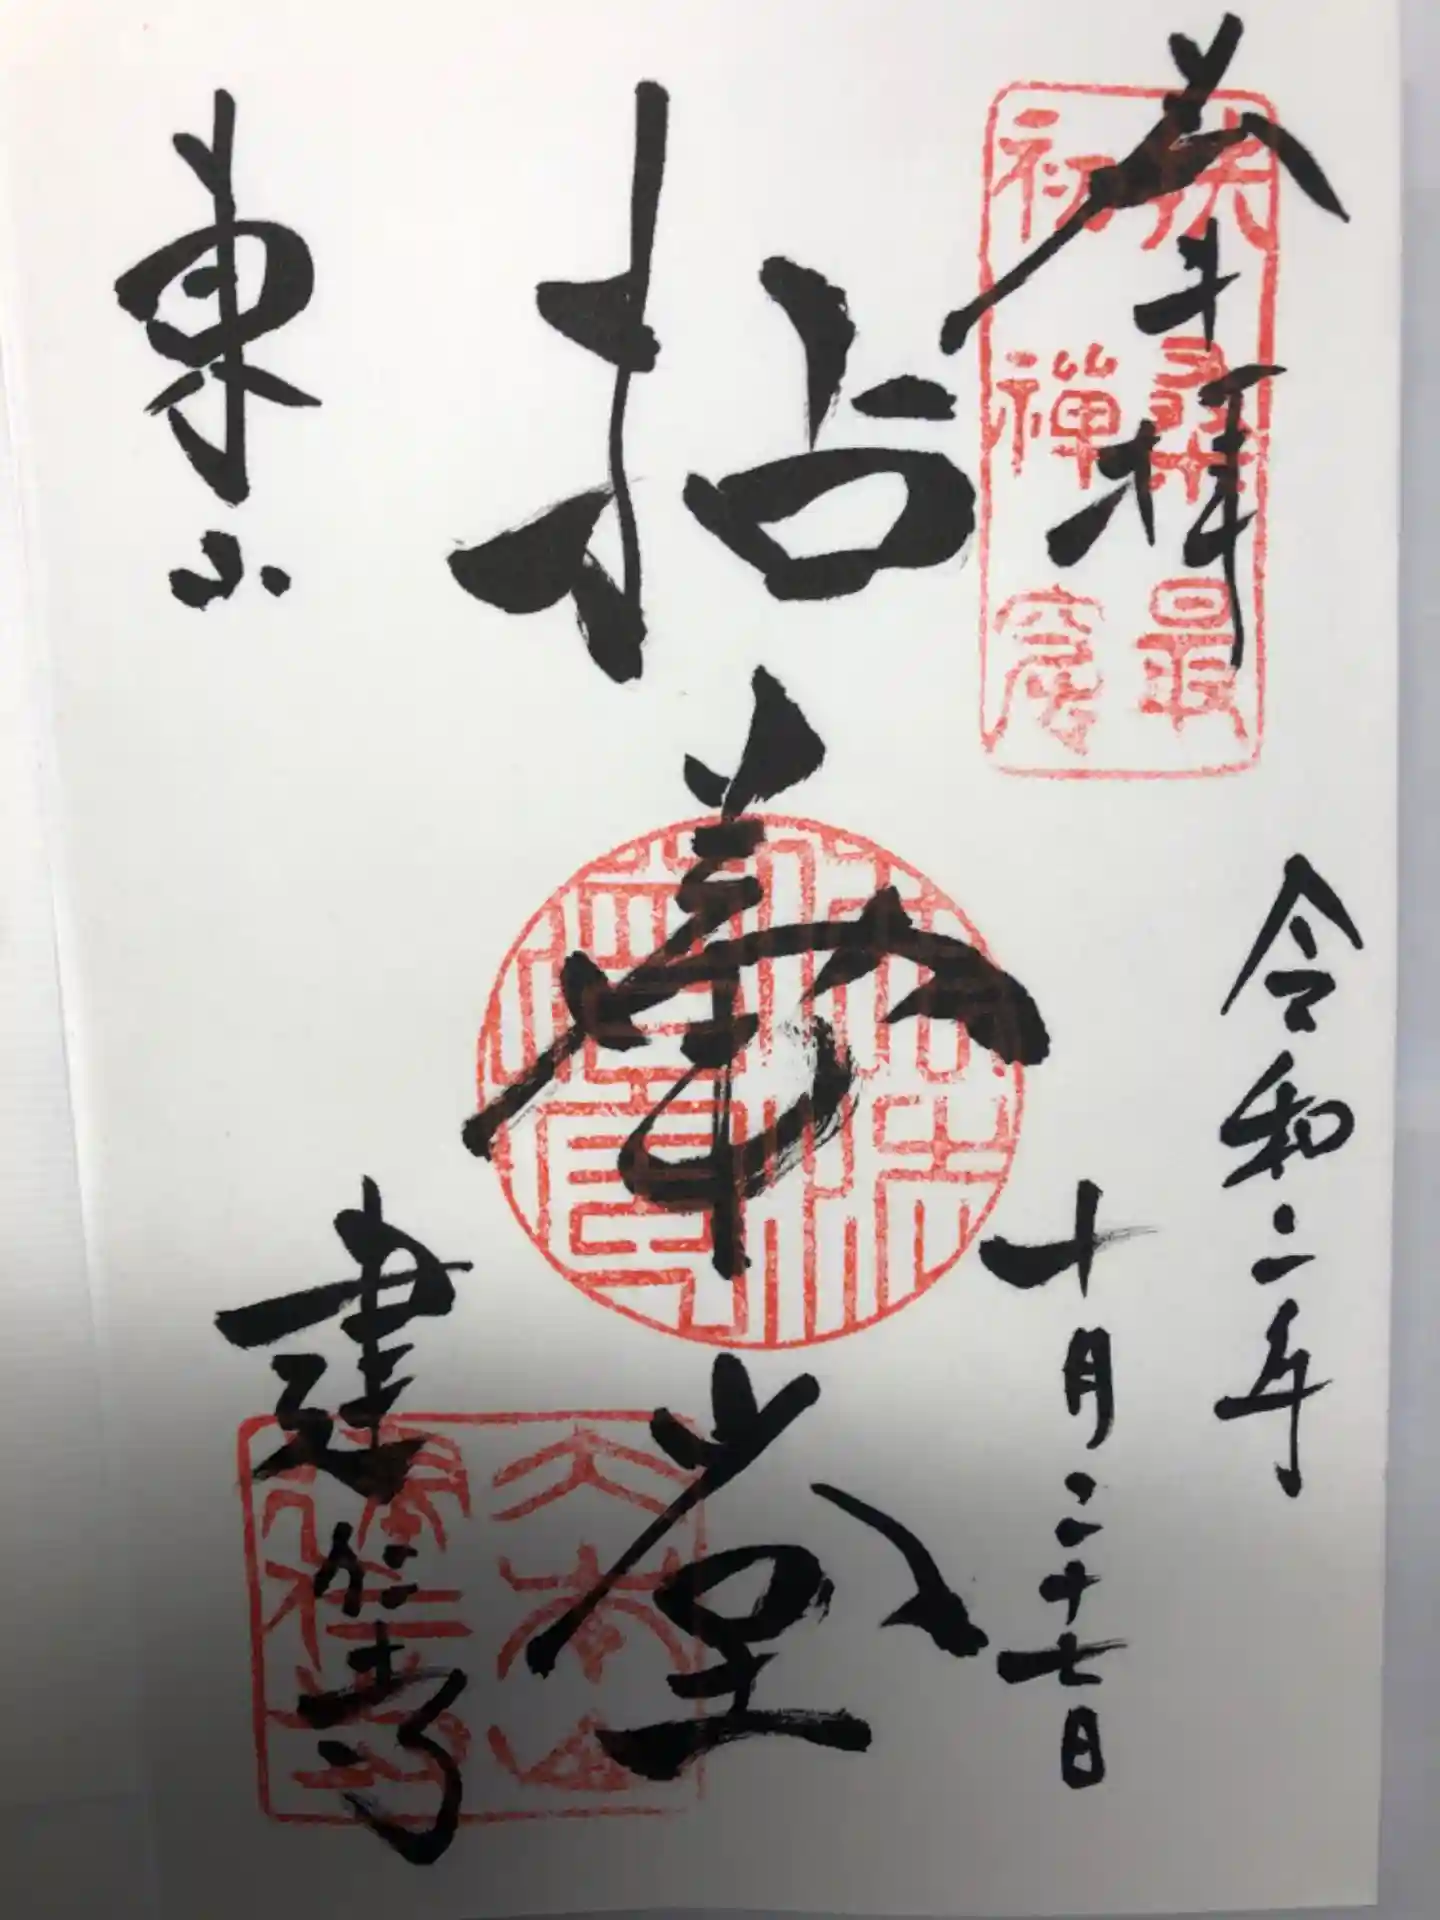 奉拝
扶桑最
初禅窟
令和二年
十月二十七日
拈華堂
東山
建仁寺